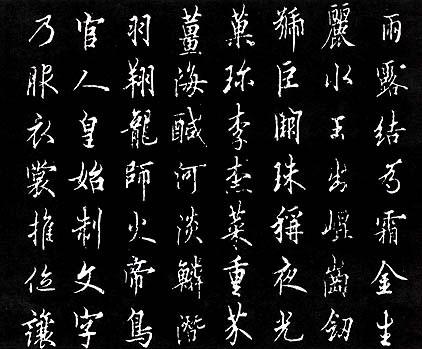 雨露結為霜金生
麗水玉出崐崗釼
號巨闕珠稱夜光
菓珎李柰菜重芥
薑海醎河淡鱗潛
羽翔龍師火帝鳥
官人皇始制文字
乃服衣裳推位讓